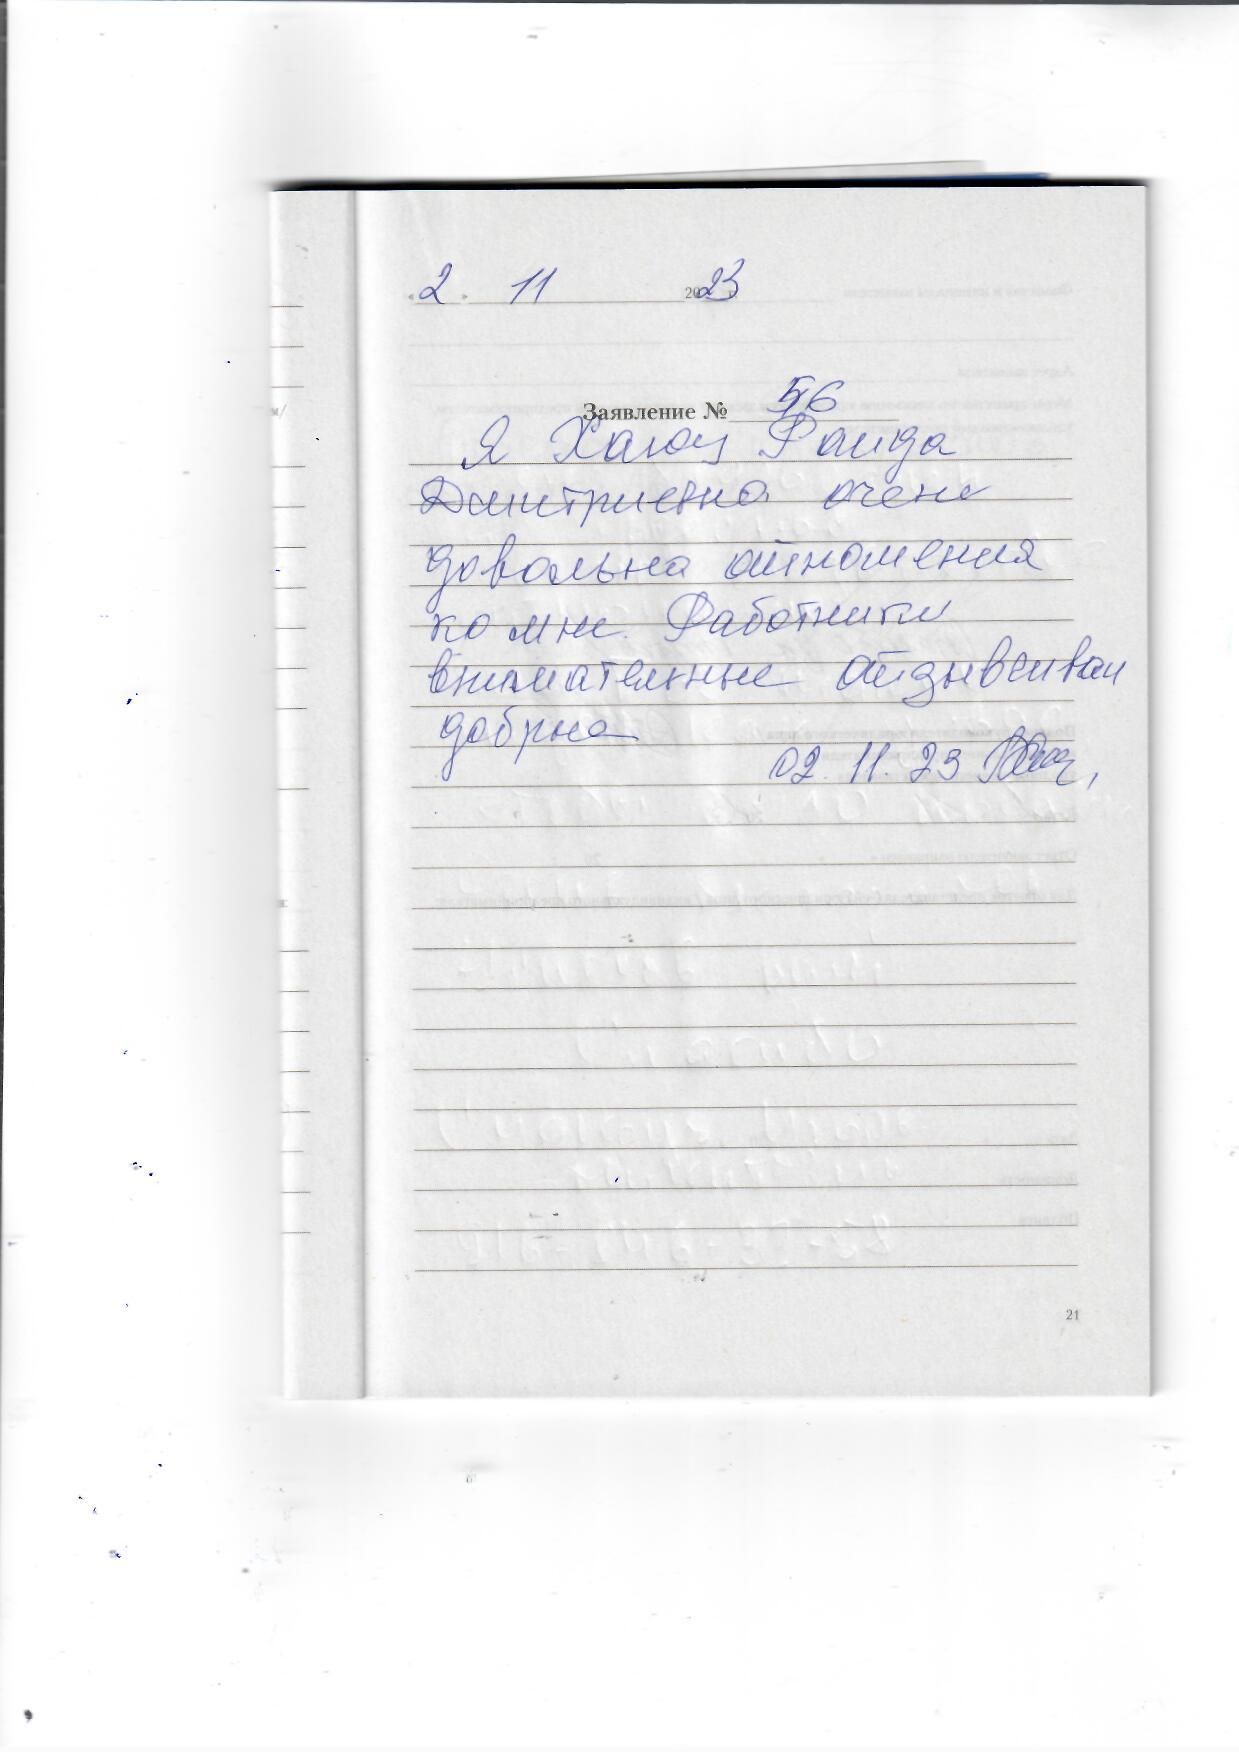 « 2 » 11 2023
Заявление № 56
Я Раида
Дмитриевна очень
довольна отношения
ко мне. Работники
внимательные
добрые
02.11.23
21